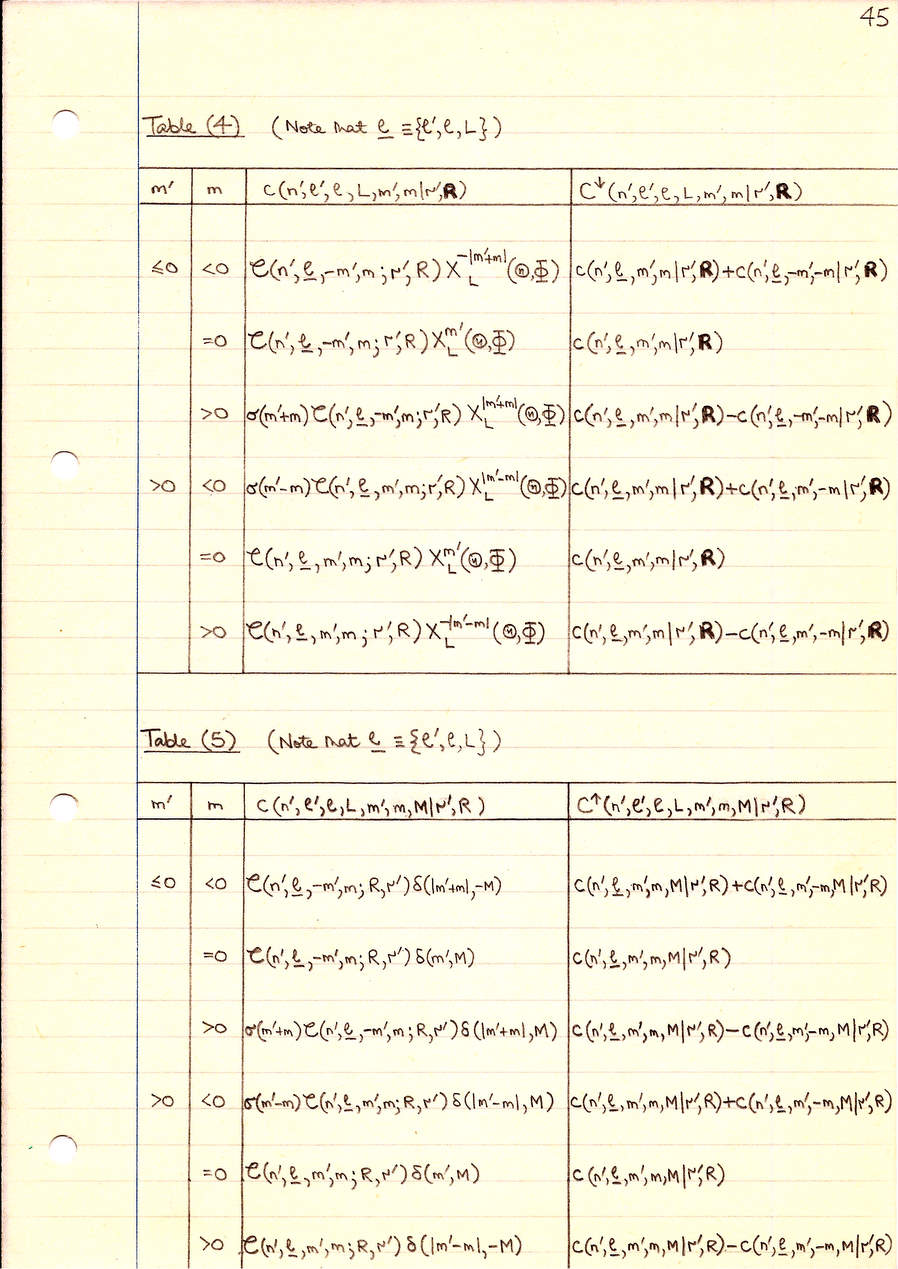 45
Table (4) (Note that ℓ̲ ≡ {ℓ',ℓ,L})
m' m c(n',ℓ',ℓ,L,m',m|r',𝐑) C↓(n',ℓ',ℓ,L,m',m|r',𝐑)
≤0 <0 𝒞(n',ℓ̲,-m',m;r',R) X_L^{-|m'+m|}(Θ,Φ) c(n',ℓ̲,m',m|r',𝐑)+c(n',ℓ̲,-m',-m|r',𝐑)
=0 𝒞(n',ℓ̲,-m',m;r',R) X_L^{m'}(Θ,Φ) c(n',ℓ̲,m',m|r',𝐑)
>0 σ(m'+m)𝒞(n',ℓ̲,-m',m;r',R) X_L^{|m'+m|}(Θ,Φ) c(n',ℓ̲,m',m|r',𝐑)-c(n',ℓ̲,-m',-m|r',𝐑)
>0 <0 σ(m'-m)𝒞(n',ℓ̲,m',m;r',R) X_L^{|m'-m|}(Θ,Φ) c(n',ℓ̲,m',m|r',𝐑)+c(n',ℓ̲,m',-m|r',𝐑)
=0 𝒞(n',ℓ̲,m',m;r',R) X_L^{m'}(Θ,Φ) c(n',ℓ̲,m',m|r',𝐑)
>0 𝒞(n',ℓ̲,m',m;r',R) X_L^{-|m'-m|}(Θ,Φ) c(n',ℓ̲,m',m|r',𝐑)-c(n',ℓ̲,m',-m|r',𝐑)
Table (5) (Note that ℓ̲ ≡ {ℓ',ℓ,L})
m' m c(n',ℓ',ℓ,L,m',m,M|r',R) C↑(n',ℓ',ℓ,L,m',m,M|r',R)
≤0 <0 𝒞(n',ℓ̲,-m',m;R,r')δ(|m'+m|,-M) c(n',ℓ̲,m',m,M|r',R)+c(n',ℓ̲,m',-m,M|r',R)
=0 𝒞(n',ℓ̲,-m',m;R,r')δ(m',M) c(n',ℓ̲,m',m,M|r',R)
>0 σ(m'+m)𝒞(n',ℓ̲,-m',m;R,r')δ(|m'+m|,M) c(n',ℓ̲,m',m,M|r',R)-c(n',ℓ̲,m',-m,M|r',R)
>0 <0 σ(m'-m)𝒞(n',ℓ̲,m',m;R,r')δ(|m'-m|,M) c(n',ℓ̲,m',m,M|r',R)+c(n',ℓ̲,m',-m,M|r',R)
=0 𝒞(n',ℓ̲,m',m;R,r')δ(m',M) c(n',ℓ̲,m',m,M|r',R)
>0 𝒞(n',ℓ̲,m',m;R,r')δ(|m'-m|,-M) c(n',ℓ̲,m',m,M|r',R)-c(n',ℓ̲,m',-m,M|r',R)